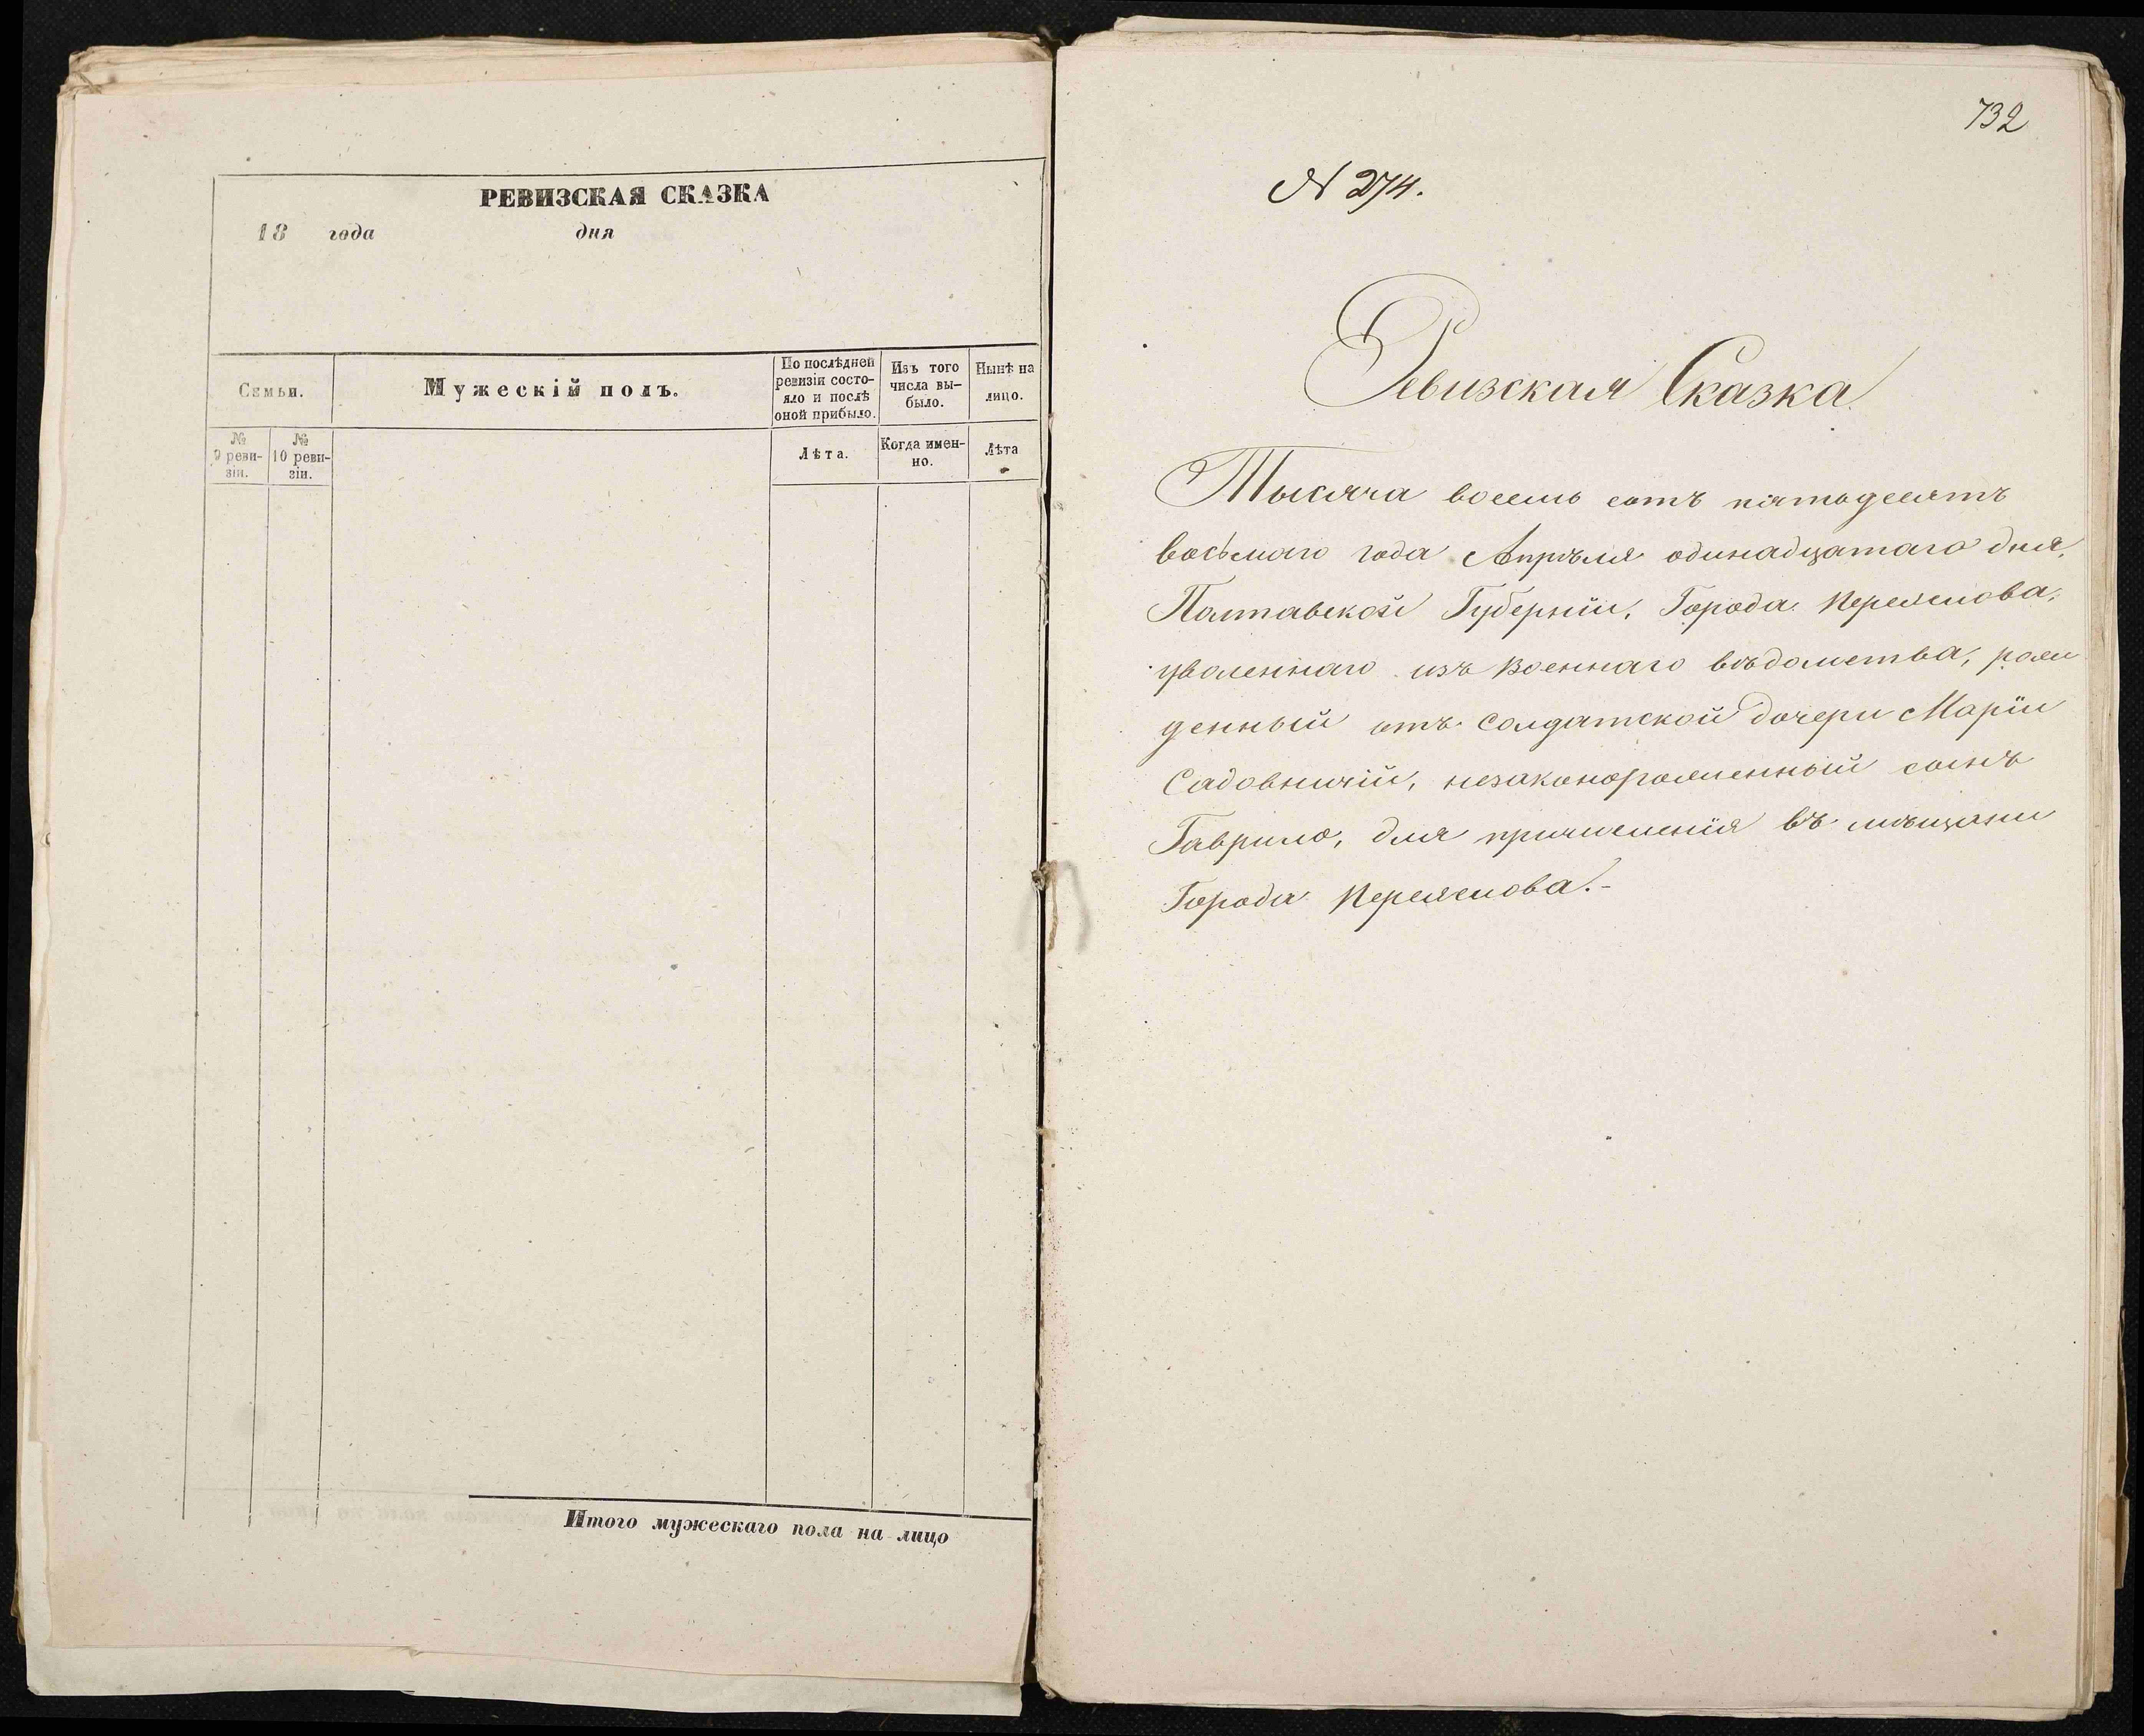 РЕВИЗСКАЯ СКАЗКА
18 года дня
Семьи.
Мужескій полъ.
По послѣдней
ревизіи состо-
яло и послѣ
оной прибыло.
Изъ того
числа вы-
было.
Нынѣ на
лицо.
№
9 реви-
зіи.
№
10 реви-
зіи.
Лѣта.
Когда имен-
но.
Лѣта
Итого мужескаго пола на лицо
732
№ 274.
Ревизская Сказка
Тысяча восемь сотъ пятьдесятъ
восьмаго года Апрѣля одинадцатаго дня,
Полтавской Губерніи, Города Переяслова,
уволеннаго изъ военнаго вѣдомства, рож
денный отъ солдатской дочери Маріи
Садовничій, незаконорожденный сынъ
Гаврило, для причисленія въ мѣщани
Города Переяслова.-